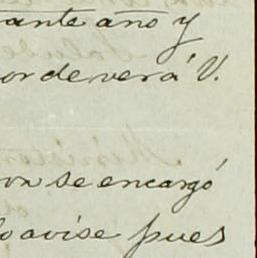 ante año y
or deverá V.
se encargó
avise pues